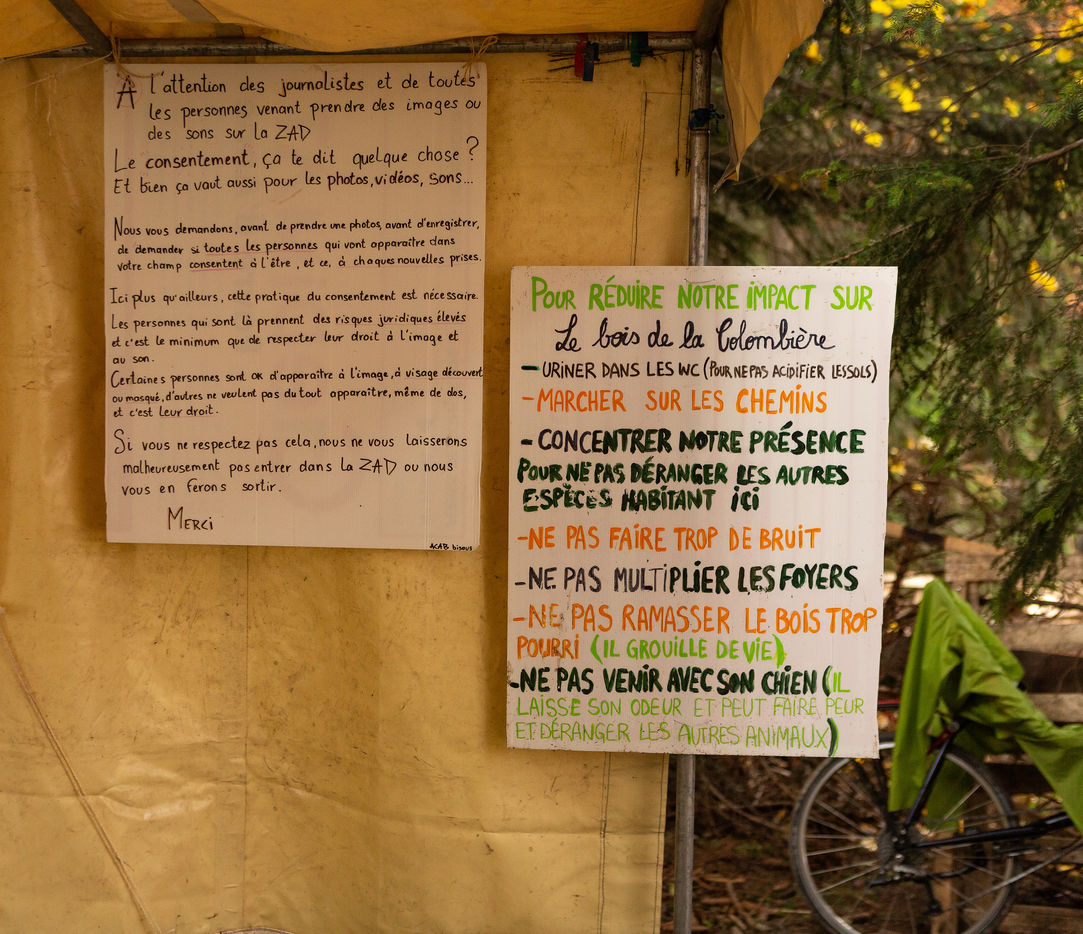 A l'attention des journalistes et de toutes
les personnes venant prendre des images ou
des sons sur la ZAD
Le consentement, ça te dit quelque chose ?
Et bien ça vaut aussi pour les photos, vidéos, sons...
Nous vous demandons, avant de prendre une photos, avant d'enregistrer,
de demander si toutes les personnes qui vont apparaître dans
votre champ consentent à l'être, et ce, à chaques nouvelles prises.
Ici plus qu'ailleurs, cette pratique du consentement est nécessaire.
Les personnes qui sont là prennent des risques juridiques élevés
et c'est le minimum que de respecter leur droit à l'image et
au son.
Certaines personnes sont OK d'apparaître à l'image, à visage découvert
ou masqué, d'autres ne veulent pas du tout apparaître, même de dos,
et c'est leur droit.
Si vous ne respectez pas cela, nous ne vous laisserons
malheureusement pas entrer dans la ZAD ou nous
vous en ferons sortir.
Merci
ACAB bisous
POUR RÉDUIRE NOTRE IMPACT SUR
Le bois de la Colombière
- URINER DANS LES WC (POUR NE PAS ACIDIFIER LES SOLS)
- MARCHER SUR LES CHEMINS
- CONCENTRER NOTRE PRÉSENCE
POUR NE PAS DÉRANGER LES AUTRES
ESPÈCES HABITANT ICI
- NE PAS FAIRE TROP DE BRUIT
- NE PAS MULTIPLIER LES FOYERS
- NE PAS RAMASSER LE BOIS TROP
POURRI (IL GROUILLE DE VIE)
- NE PAS VENIR AVEC SON CHIEN (IL
LAISSE SON ODEUR ET PEUT FAIRE PEUR
ET DÉRANGER LES AUTRES ANIMAUX)